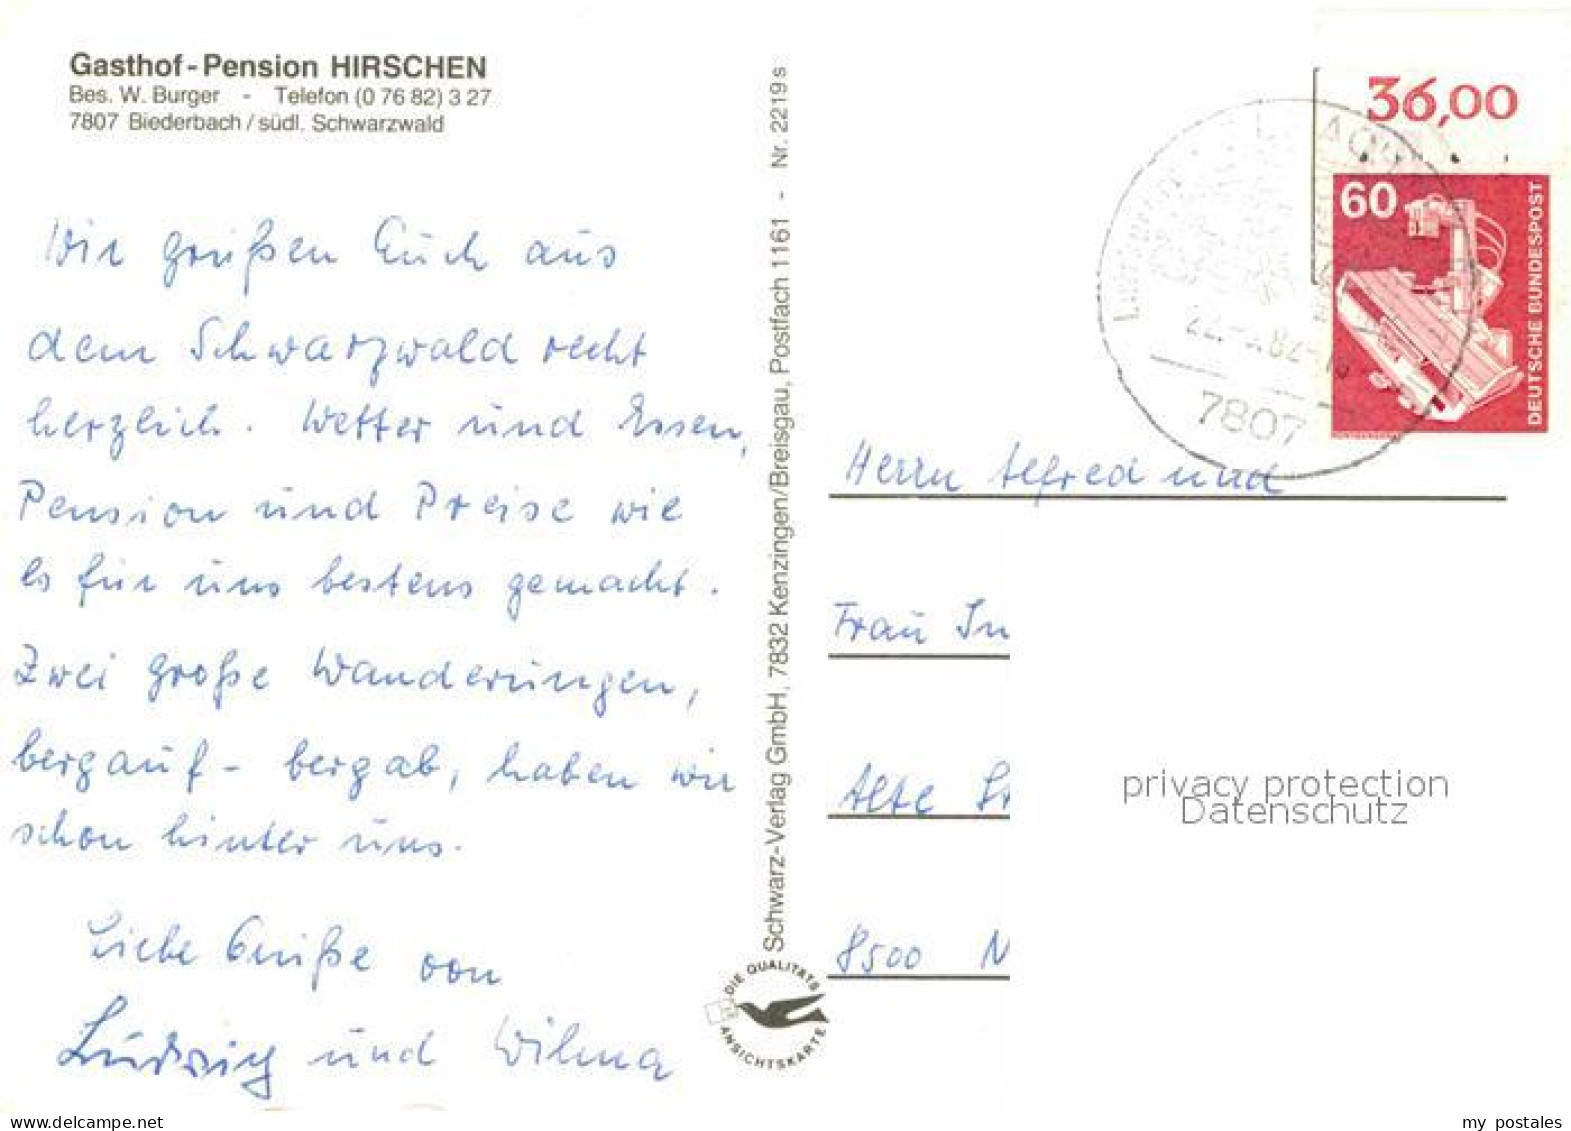 Gasthof-Pension HIRSCHEN
Bes. W. Burger - Telefon (0 76 82) 3 27
7807 Biederbach / südl. Schwarzwald
Wir grüßen Euch aus
dem Schwarzwald recht
herzlich. Wetter und Essen,
Pension und Preise wie
es für uns bestens gemacht.
Zwei große Wanderungen,
bergauf - bergab, haben wir
schon hinter uns.
Liebe Grüße von
Ludwig und Wilma
Schwarz-Verlag GmbH, 7832 Kenzingen/Breisgau, Postfach 1161 - Nr. 2219 s
DIE QUALITÄTS
ANSICHTSKARTE
36,00
60
DEUTSCHE BUNDESPOST
7807
Herrn Alfred und
Frau In
Alte
8500 N
privacy protection
Datenschutz
my postales
www.delcampe.net